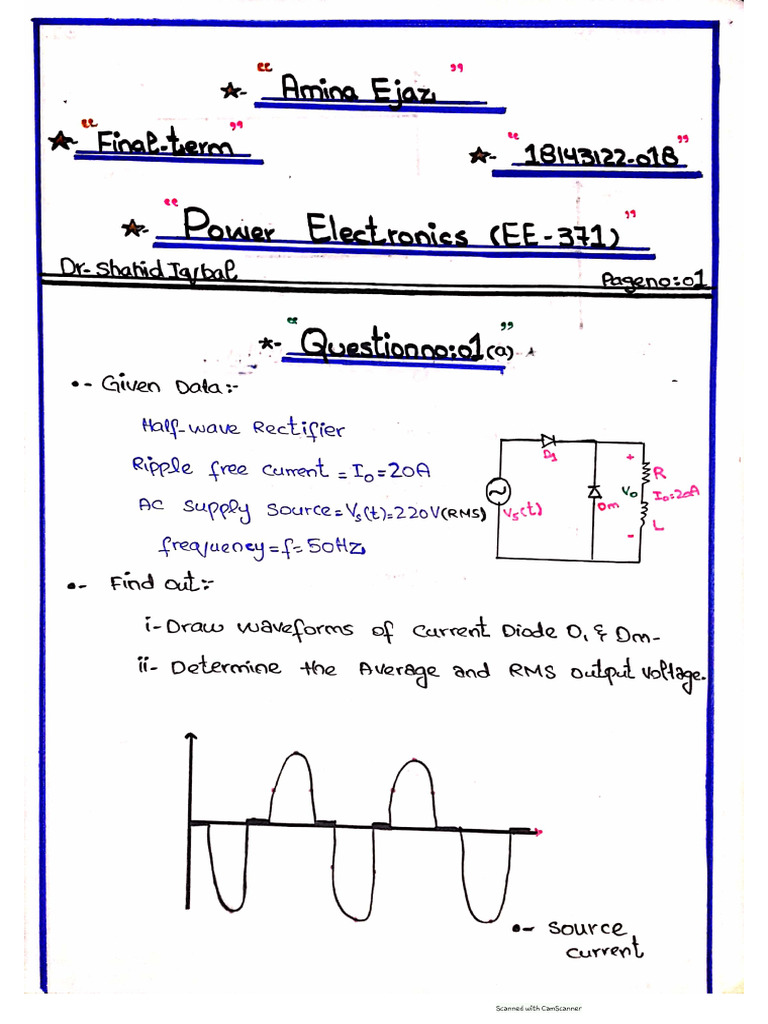 ★- "Amina Ejaz"
★- "Final-term"
★- "18143122-018"
★- "Power Electronics (EE-371)"
Dr-Shahid Iqbal
Pageno:01
*- "Questionno:01(a) *
•- Given Data:-
Half-wave Rectifier
Ripple free current = I₀=20A
AC supply source=Vs(t)=220V(RMS)
frequency=f=50Hz
D1
+
R
Dm
Vo
I₀=20A
Vs(t)
L
-
•- Find out:-
i-Draw waveforms of current Diode D₁ & Dm-
ii- Determine the Average and RMS output voltage.
•- Source
current
Scanned with CamScanner